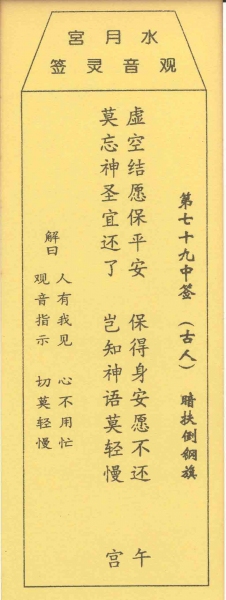 水月宮
观音灵签
第七十九中签 （古人） 暗扶倒铜旗
虚空结愿保平安 保得身安愿不还 午
莫忘神圣宜还了 岂知神语莫轻慢 宫
解曰
人有我见 心不用忙
观音指示 切莫轻慢